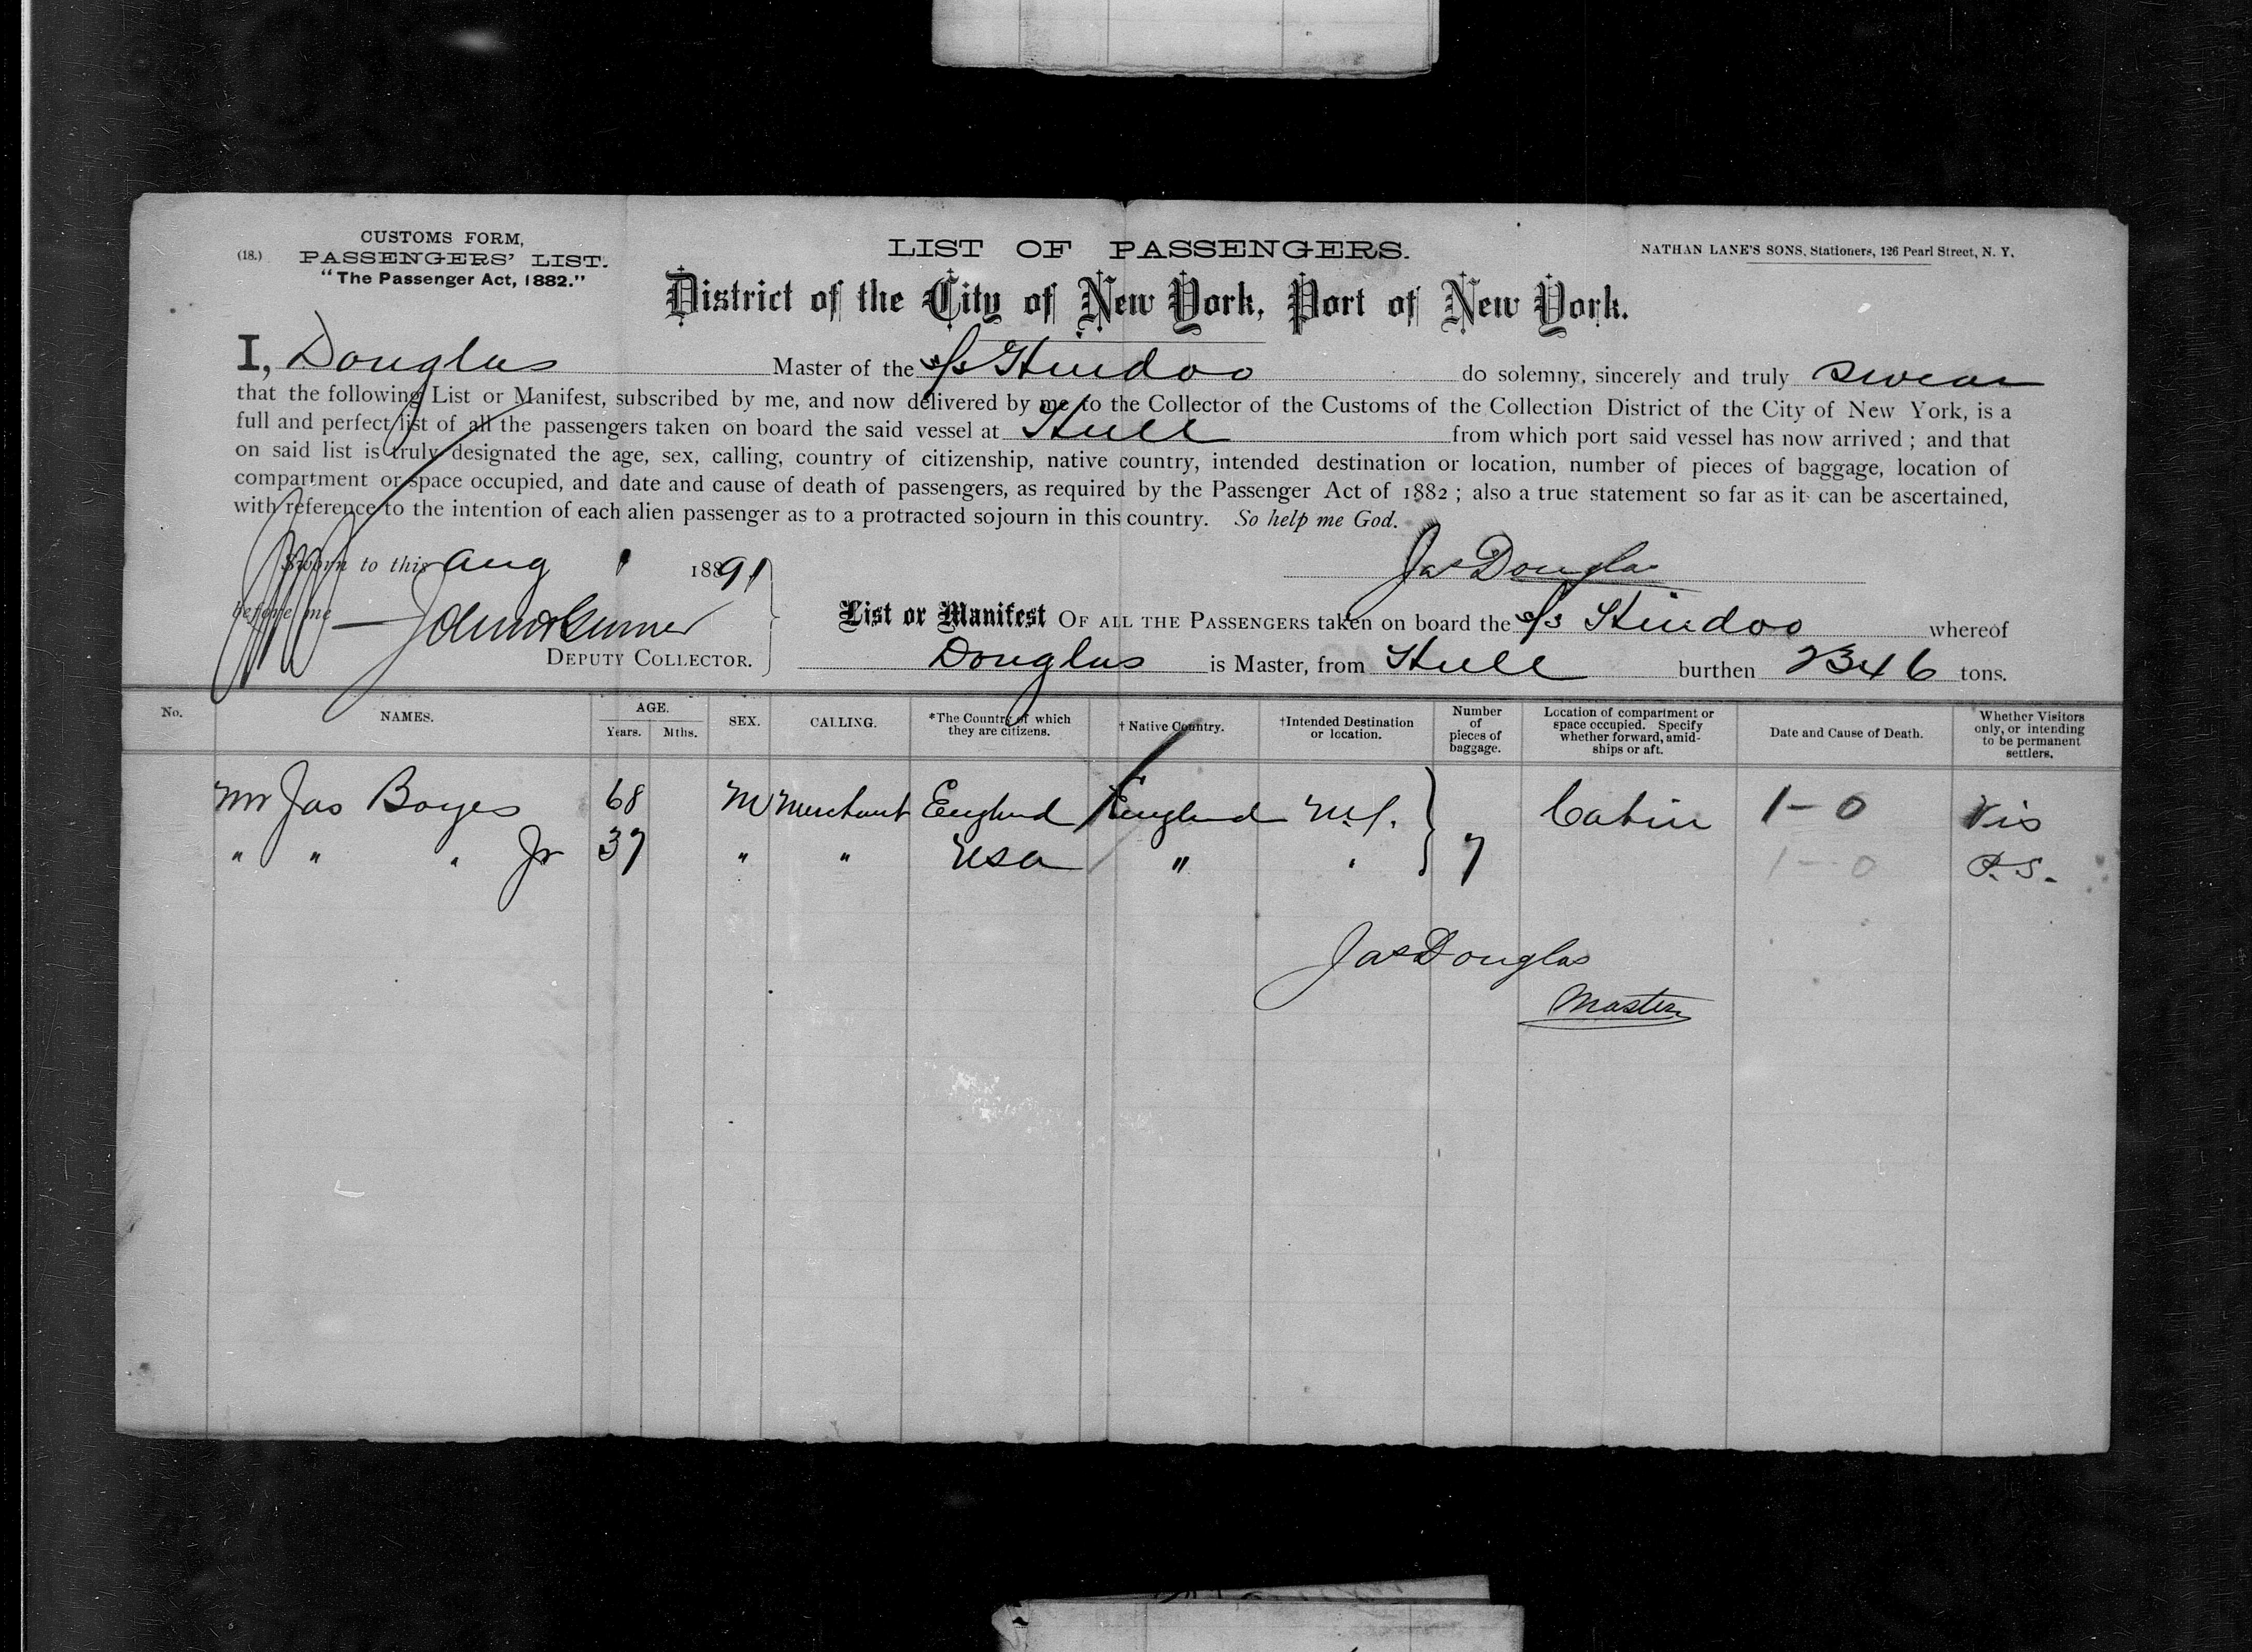 (18.)
CUSTOMS FORM,
PASSENGERS' LIST.
"The Passenger Act, 1882."
LIST OF PASSENGERS.
NATHAN LANE'S SONS, Stationers, 126 Pearl Street, N. Y.
District of the City of New York, Port of New York.
I, Douglas Master of the s/s Hindoo do solemny, sincerely and truly swear
that the following List or Manifest, subscribed by me, and now delivered by me to the Collector of the Customs of the Collection District of the City of New York, is a
full and perfect list of all the passengers taken on board the said vessel at Hull from which port said vessel has now arrived ; and that
on said list is truly designated the age, sex, calling, country of citizenship, native country, intended destination or location, number of pieces of baggage, location of
compartment or space occupied, and date and cause of death of passengers, as required by the Passenger Act of 1882 ; also a true statement so far as it can be ascertained,
with reference to the intention of each alien passenger as to a protracted sojourn in this country. So help me God.
Sworn to this Aug 1 1891
Jas Douglas
before me
DEPUTY COLLECTOR.
List or Manifest OF ALL THE PASSENGERS taken on board the s/s Hindoo whereof
Douglas is Master, from Hull burthen 2346 tons.
No. NAMES. AGE. Years. Mths. SEX. CALLING. *The Country of which they are citizens. † Native Country. †Intended Destination or location. Number of pieces of baggage. Location of compartment or space occupied. Specify whether forward, amidships or aft. Date and Cause of Death. Whether Visitors only, or intending to be permanent settlers.
Mr Jas Boyes 68 M Merchant England England N.Y. Cabin 1 - 0 Vis
" " " Jr 37 " " USA " " 7 1 - 0 P.S.
Jas Douglas
Master